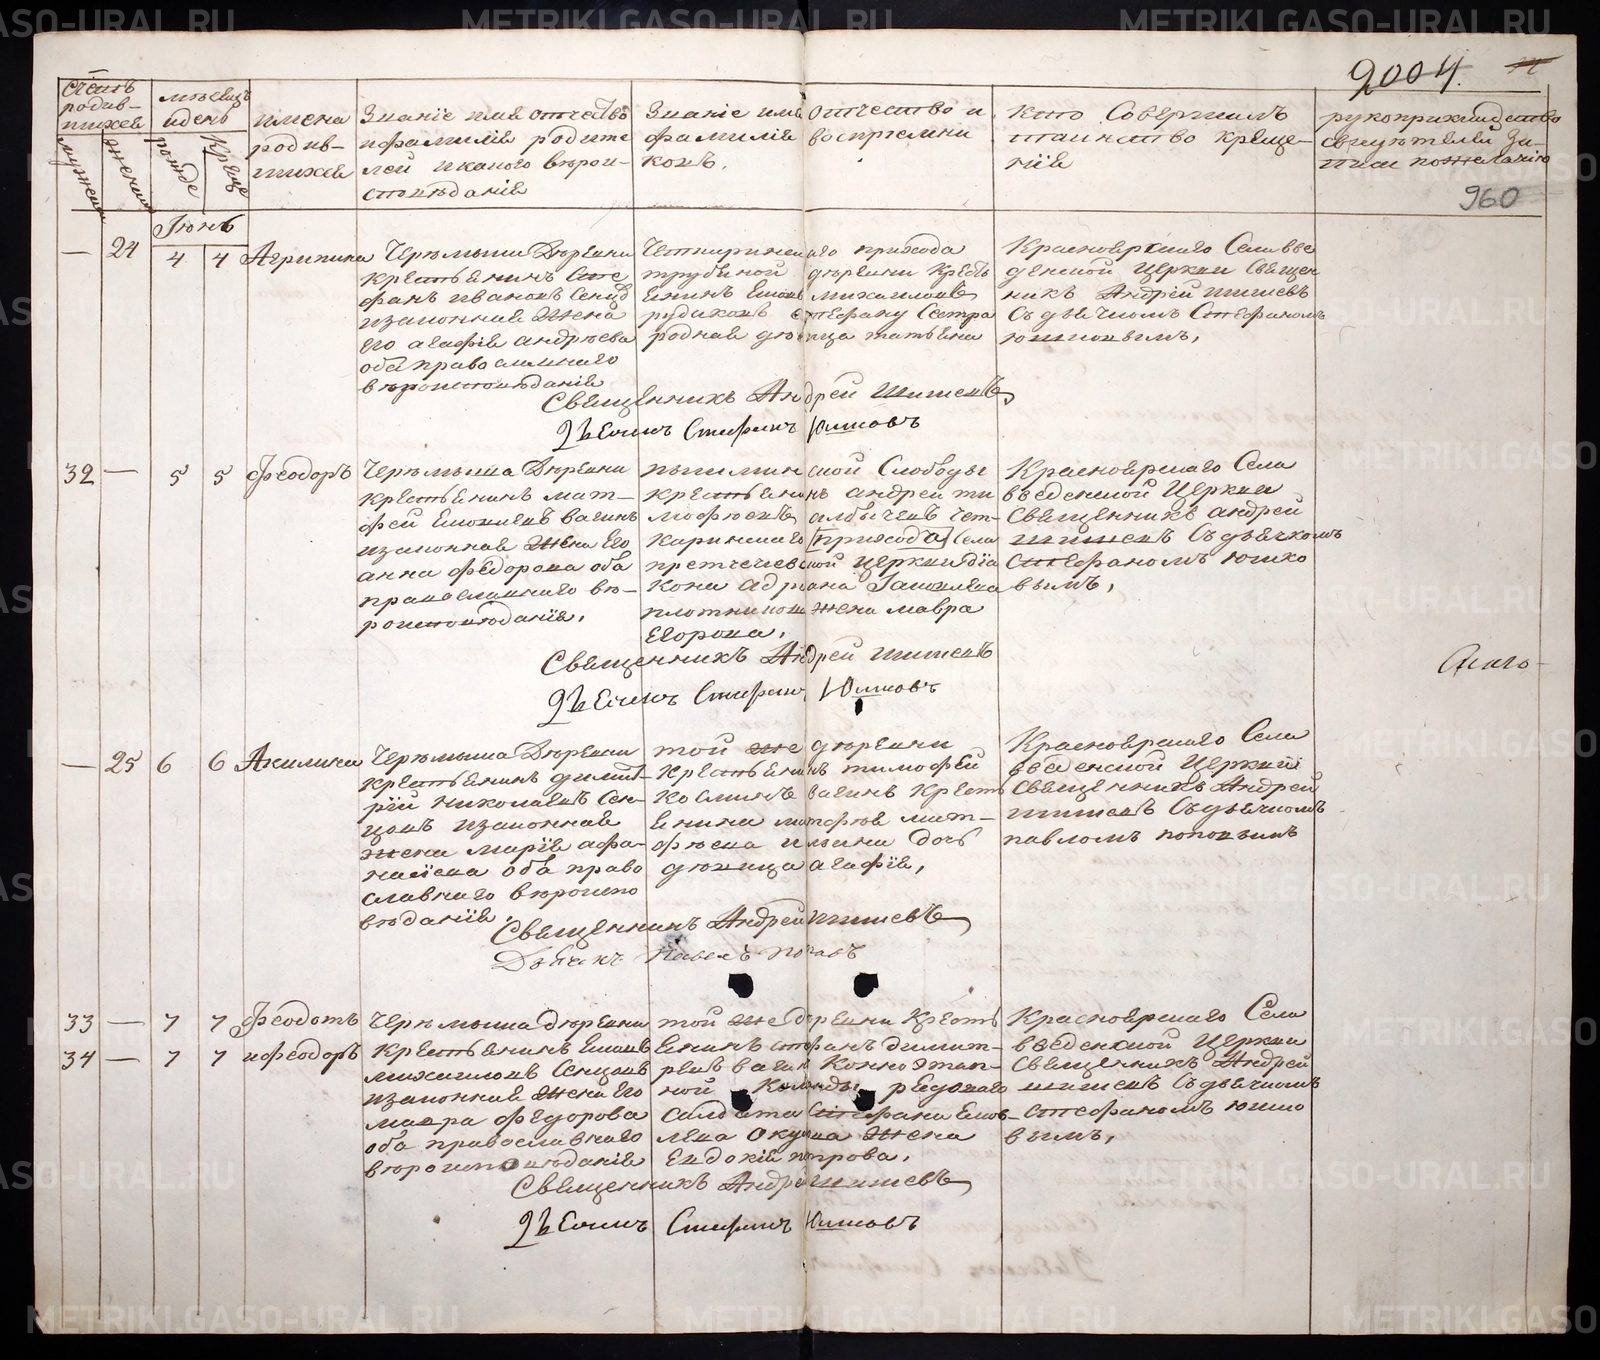 METRIKI.GASO-URAL.RU
2004.
960
Счетъ родив-шихся
мужеска
женска
месяцъ и день
рожде
креще
имена родив-шихся
Званiе имя отчество и фамилiя родите-лей и какого вероис-поведанiя
Званiе имя отчество и фамилiя воспрiемни-ковъ.
Кто совершалъ таинство креще-нiя
рукоприкладство свидетелей за-писи по желанiю
Iюнь
— 24 4 4 Агрипина
Черемыша Деревни
крестьянинъ Сте
фанъ Ивановъ
изаконная жена
его агафiя андреева
оба православнаго
вероисповеданiя
прихода
деревни кресть
янинъ
Михайловъ
Стефану Сестра
родная девица татьяна
Красноярскаго Села Вве
денской Церкви Священ
никъ Андрей Шишевъ
Съ дьячкомъ Стефаномъ
Юшковымъ,
Священникъ Андрей Шишевъ
Дьячикъ Стефанъ Юшковъ
32 — 5 5 Феодоръ
Черемыша Деревни
крестьянинъ мат-
фей вагинъ
изаконная жена Его
анна Федорова оба
православнаго ве-
роисповеданiя,
пышмин ской Слободы
крестьянинъ андрей ти
мофеевъ
прихода Села
церкви дiа
кона адрiана
жена мавра
Егорова,
Красноярскаго Села
введенской Церкви
Священникъ андрей
шишевъ Съ дьячкомъ
Стефаномъ юшко
вымъ,
Священникъ Андрей Шишевъ
Дьячикъ Стефанъ Юшковъ
— 25 6 6 Акилина
Черемыша Деревни
крестьянинъ Димит-
рiй николаевъ Сен-
цовъ изаконная
жена марiя афа-
насiева оба право
славнаго вероиспо
веданiя.
той же деревни
крестьянинъ тимофей
Косминъ вагинъ крест
янина матфея мат-
феева вагина дочь
девица агафiя,
Красноярскаго Села
введенской Церкви
Священникъ Андрей
шишевъ Съ дьячкомъ
павломъ поповымъ
Священникъ Андрей Шишевъ
Дьячикъ Павелъ Поповъ
33 — 7 7 Феодотъ
34 — 7 7 и феодоръ
Черемыша деревни
Крестьянинъ
михайловъ Сенцовъ
изаконная жена Его
мавра Федорова
оба православнаго
вероисповеданiя
той же деревни Крест
янинъ стефанъ димит-
рiевъ вагинъ Конно этап-
ной Команды рядоваго
Салдата Стефана
жена
Евдокiя петрова,
Красноярскаго Села
введенской Церкви
Священникъ Андрей
шишевъ Съ дьячкомъ
Стефаномъ юшко
вымъ,
Священникъ Андрей Шишевъ
Дьячикъ Стефанъ Юшковъ